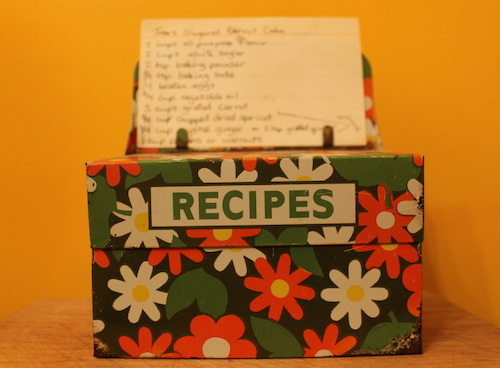 Gingered Carrot Cake
2 cups all purpose flour
2 cups white sugar
tsp. baking powder
tsp. baking soda
4 beaten eggs
cup vegetable oil
3 cups grated carrot
cup chopped dried apricot
ginger or
RECIPES